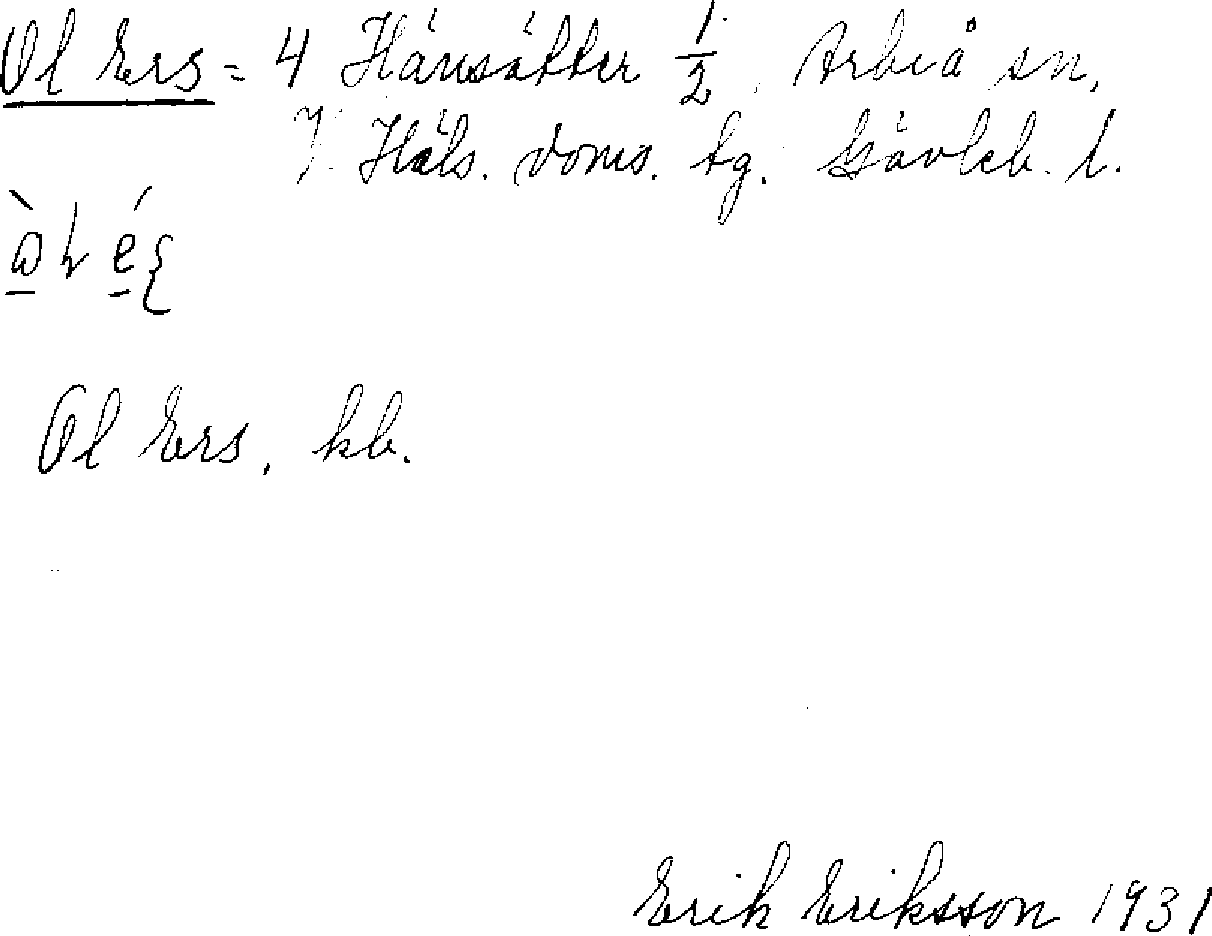 Ol Ers = 4 Hänsätter 1/2, Arbrå sn,
V. Häls. doms. tg. Gävleb. l.
Ol Ers, kb.
Erik Eriksson 1931